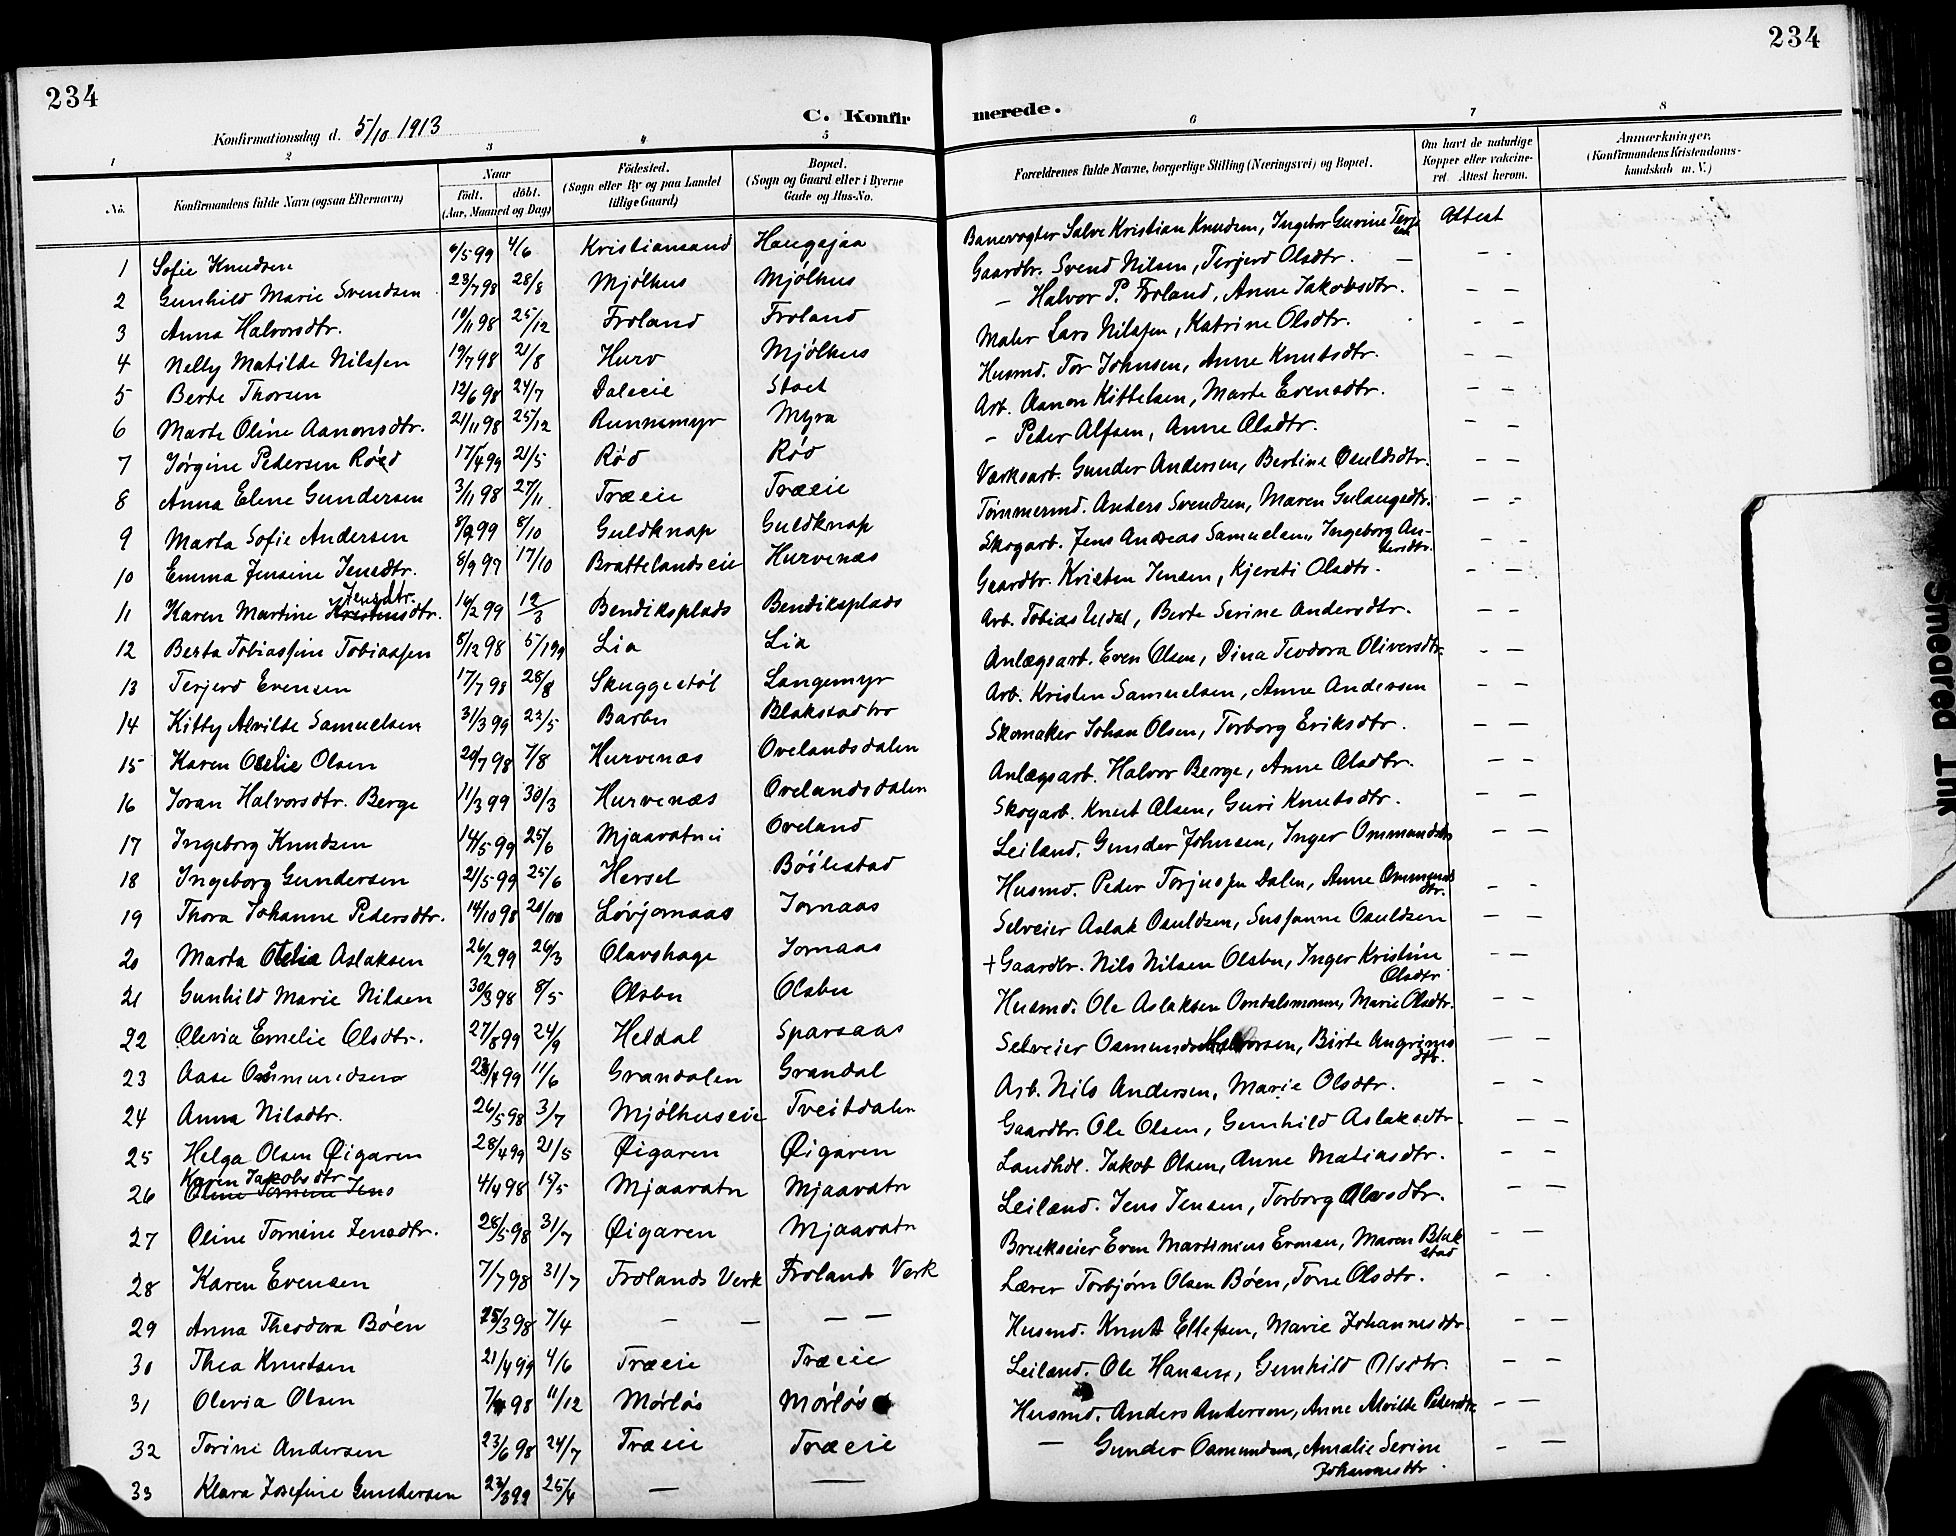 234
234
C. Konfirmerede.
Konfirmationsdag d. 5/10 1913
1 2 3 4 5 6 7 8
No.
Konfirmandens fulde Navn (ogsaa Efternavn)
Naar
født. døbt.
(Aar, Maaned og Dag)
Fødested.
(Sogn eller By og paa Landet
tillige Gaard)
Bopæl.
(Sogn og Gaard eller i Byerne
Gade og Hus-No.
Forældrenes fulde Navne, borgerlige Stilling (Næringsvei) og Bopæl.
Om havt de naturlige
Kopper eller vakcine-
ret. Attest herom.
Anmærkninger,
(Konfirmandens Kristendoms-
kundskab m. V.)
1 Sofie Knudsen 6/5 99 4/6 Kristiansand Haugsjaa Banevogter Salve Kristian Knudsen, Ingebor Gurine Terje Attest
2 Gunhild Marie Svendsen 23/7 98 28/8 Mjølhus Mjølhus Gaardbr. Svend Nilsen, Terjerd Olsdtr. — - -
3 Anna Halvorsdtr. 19/11 98 25/12 Froland Froland — Halvor P. Froland, Anne Jakobsdtr. — —
4 Nelly Matilde Nilssen 19/7 98 21/8 Hurv Mjølhus Maler Lars Nilssen, Katrine Olsdtr. — —
5 Berte Thorsen 12/6 98 24/7 Daleeie Stoet Husmd. Tor Johnsen, Anne Knutsdtr. — —
6 Marte Oline Aanonsdtr. 21/11 98 25/12 Runnemyr Myra Arb. Aanon Kittelsen, Marte Evensdtr. — —
7 Jørgine Pedersen Røed 17/4 99 21/5 Rød Rød — Peder Alfsen, Anne Olsdtr. — —
8 Anna Elene Gundersen 3/11 98 27/11 Træeie Træeie Værksarb. Gunder Andersen, Bertine Osuldsdtr. — —
9 Marta Sofie Andersen 8/9 99 8/10 Guldknap Guldknap Tømmermd. Anders Svendsen, Maren Gulaugsdtr. — —
10 Emma Jensine Jensdtr. 8/9 99 17/10 Brattelandseie Hurvenæs Skogarb. Jens Andreas Samuelsen, Ingeborg An-
dersdtr. — —
Jensdtr.
11 Karen Martine Kristensdtr. 16/2 99 19/3 Bendiksplads Bendiksplads Gaardbr. Kristen Jensen, Kjersti Olsdtr. — —
12 Berta Tobiassine Tobiassen 8/12 98 5/1 99 Lia Lia Arb. Tobias Uldal, Berte Serine Andersdtr. — —
13 Terjerd Evensen 17/7 98 28/8 Skuggestøl Langemyr Anlægsarb. Even Olsen, Dina Teodora Oliversdtr. — —
14 Kitty Alvilde Samuelsen 31/3 99 22/5 Barbu Blakstadbro Arb. Kristen Samuelsen, Anne Andersen — —
15 Karen Otelie Olsen 20/7 98 7/8 Hurvenæs Ovelandsdalen Skomaker Johan Olsen, Torborg Eriksdtr. — —
16 Joran Halvorsdtr. Berge 11/3 99 30/3 Hurvenæs Ovelandsdalen Anlægsarb. Halvor Berge, Anne Olsdtr. — —
17 Ingeborg Knudsen 14/5 99 25/6 Mjaavatnei Oveland Skogarb. Knut Olsen, Guri Knutsdtr. — —
18 Ingeborg Gundersen 21/5 99 25/6 Hersel Bøilestad Leiland. Gunder Johnsen, Inger Ommundsdtr — —
19 Thora Johanne Pedersdtr. 14/10 98 Løvjomaas Jomaas Husmd. Peder Torjussen Dalen, Anne Ommunds
dtr. — —
20 Marta Otelia Aslaksen 26/2 99 26/3 Olavshage Jomaas Selveier Aslak Osuldsen, Susanne Osuldsen — —
21 Gunhild Marie Nilsen 30/3 98 8/5 Olsbu Olsbu + Gaardbr. Nils Nilsen Olsbu, Inger Kristine
Olsdtr — —
22 Olevia Emelie Olsdtr. 27/8 99 24/9 Heldal Sparsaas Husmd. Ole Aslaksen Omdalsmoen, Marie Olsdtr. — —
23 Aase Osmundsen 23/4 99 11/6 Grandalen Grandal Selveier Osmund Halvorsen, Birte Angrims
dtr. — —
24 Anna Nilsdtr. 26/5 98 3/7 Mjølhuseie Tveitdalen Arb. Nils Andersen, Marie Olsdtr. — —
25 Helga Olsen Øigaren 28/4 99 21/5 Øigaren Øigaren Gaardbr. Ole Olsen, Gunhild Aslaksdtr. — —
Karen Jakobsdtr
26 Oline Tomine Jens 4/4 98 15/5 Mjaavatn Mjaavatn Landhdl. Jakob Olsen, Anne Matiasdtr. — —
27 Oline Tomine Jensdtr. 28/5 98 31/7 Øigaren Mjaavatn Leiland. Jens Jensen, Torborg Olavsdtr. — —
28 Karen Evensen 7/7 98 31/7 Frolands Verk Frolands Verk Brukseier Even Martinius Evensen, Maren Blak
stad — —
29 Anna Theodora Bøen 25/3 98 7/4 — — — — Lærer Torbjørn Olsen Bøen, Tone Olsdtr. — -
30 Thea Knutsen 21/4 99 4/6 Træeie Træeie Husmd. Knut Ellefsen, Marie Johannesdtr. — —
31 Olevia Olsen 98 11/12 Mørløs Mørløs Leiland. Ole Hansen, Gunhild Olsdtr. — —
32 Torine Andersen 23/6 98 24/7 Træeie Træeie Husmd. Anders Andersen, Anne Alvilde Pedersdtr — —
33 Klara Josefine Gundersen 23/3 99 25/4 — — — Gunder Osmundsen, Amalie Serine
Johannesdtr. — —
Smeared Ink